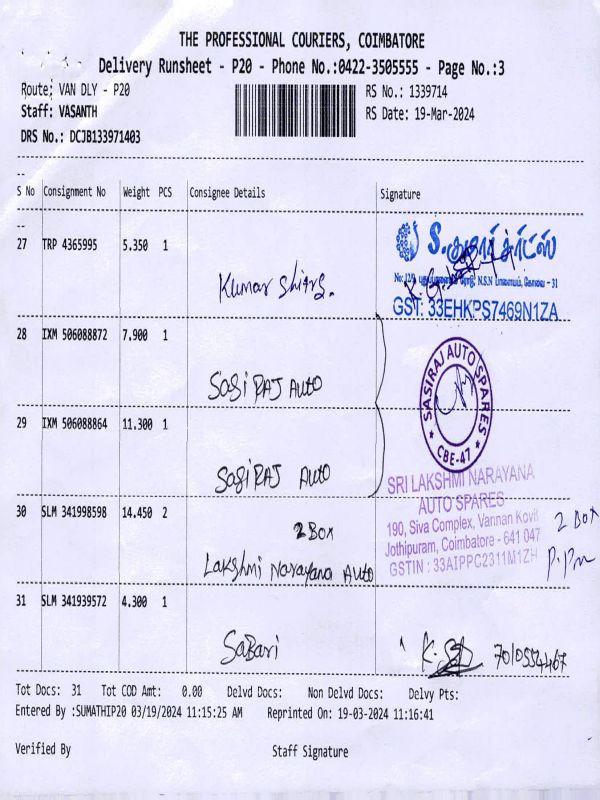 THE PROFESSIONAL COURIERS, COIMBATORE
Delivery Runsheet - P20 - Phone No.:0422-3505555 - Page No.:3
Route: VAN DLY - P20 RS No.: 1339714
Staff: VASANTH RS Date: 19-Mar-2024
DRS No.: DCJB133971403
S No Consignment No Weight PCS Consignee Details Signature
27 TRP 4365995 5.350 1
S. குமார் சர்ட்ஸ்
N.S.N பாளையம், கோவை - 31
GST: 33EHKPS7469N1ZA
Kumar Shirts.
28 IXM 506088872 7.900 1
SASIRAJ AUTO SPARES
★ CBE-47 ★
Sasi RAJ Auto
29 IXM 506088864 11.300 1
Sasi RAJ Auto
SRI LAKSHMI NARAYANA
AUTO SPARES
30 SLM 341998598 14.450 2
190, Siva Complex, Vannan Kovil
2 Box
Jothipuram, Coimbatore - 641 047
2 Box
GSTIN : 33AIPPC2311M1ZH
Lakshmi Narayana Auto
31 SLM 341939572 4.300 1
Sabari
7010554467
Tot Docs: 31 Tot COD Amt: 0.00 Delvd Docs: Non Delvd Docs: Delvy Pts:
Entered By :SUMATHIP20 03/19/2024 11:15:25 AM Reprinted On: 19-03-2024 11:16:41
Verified By Staff Signature